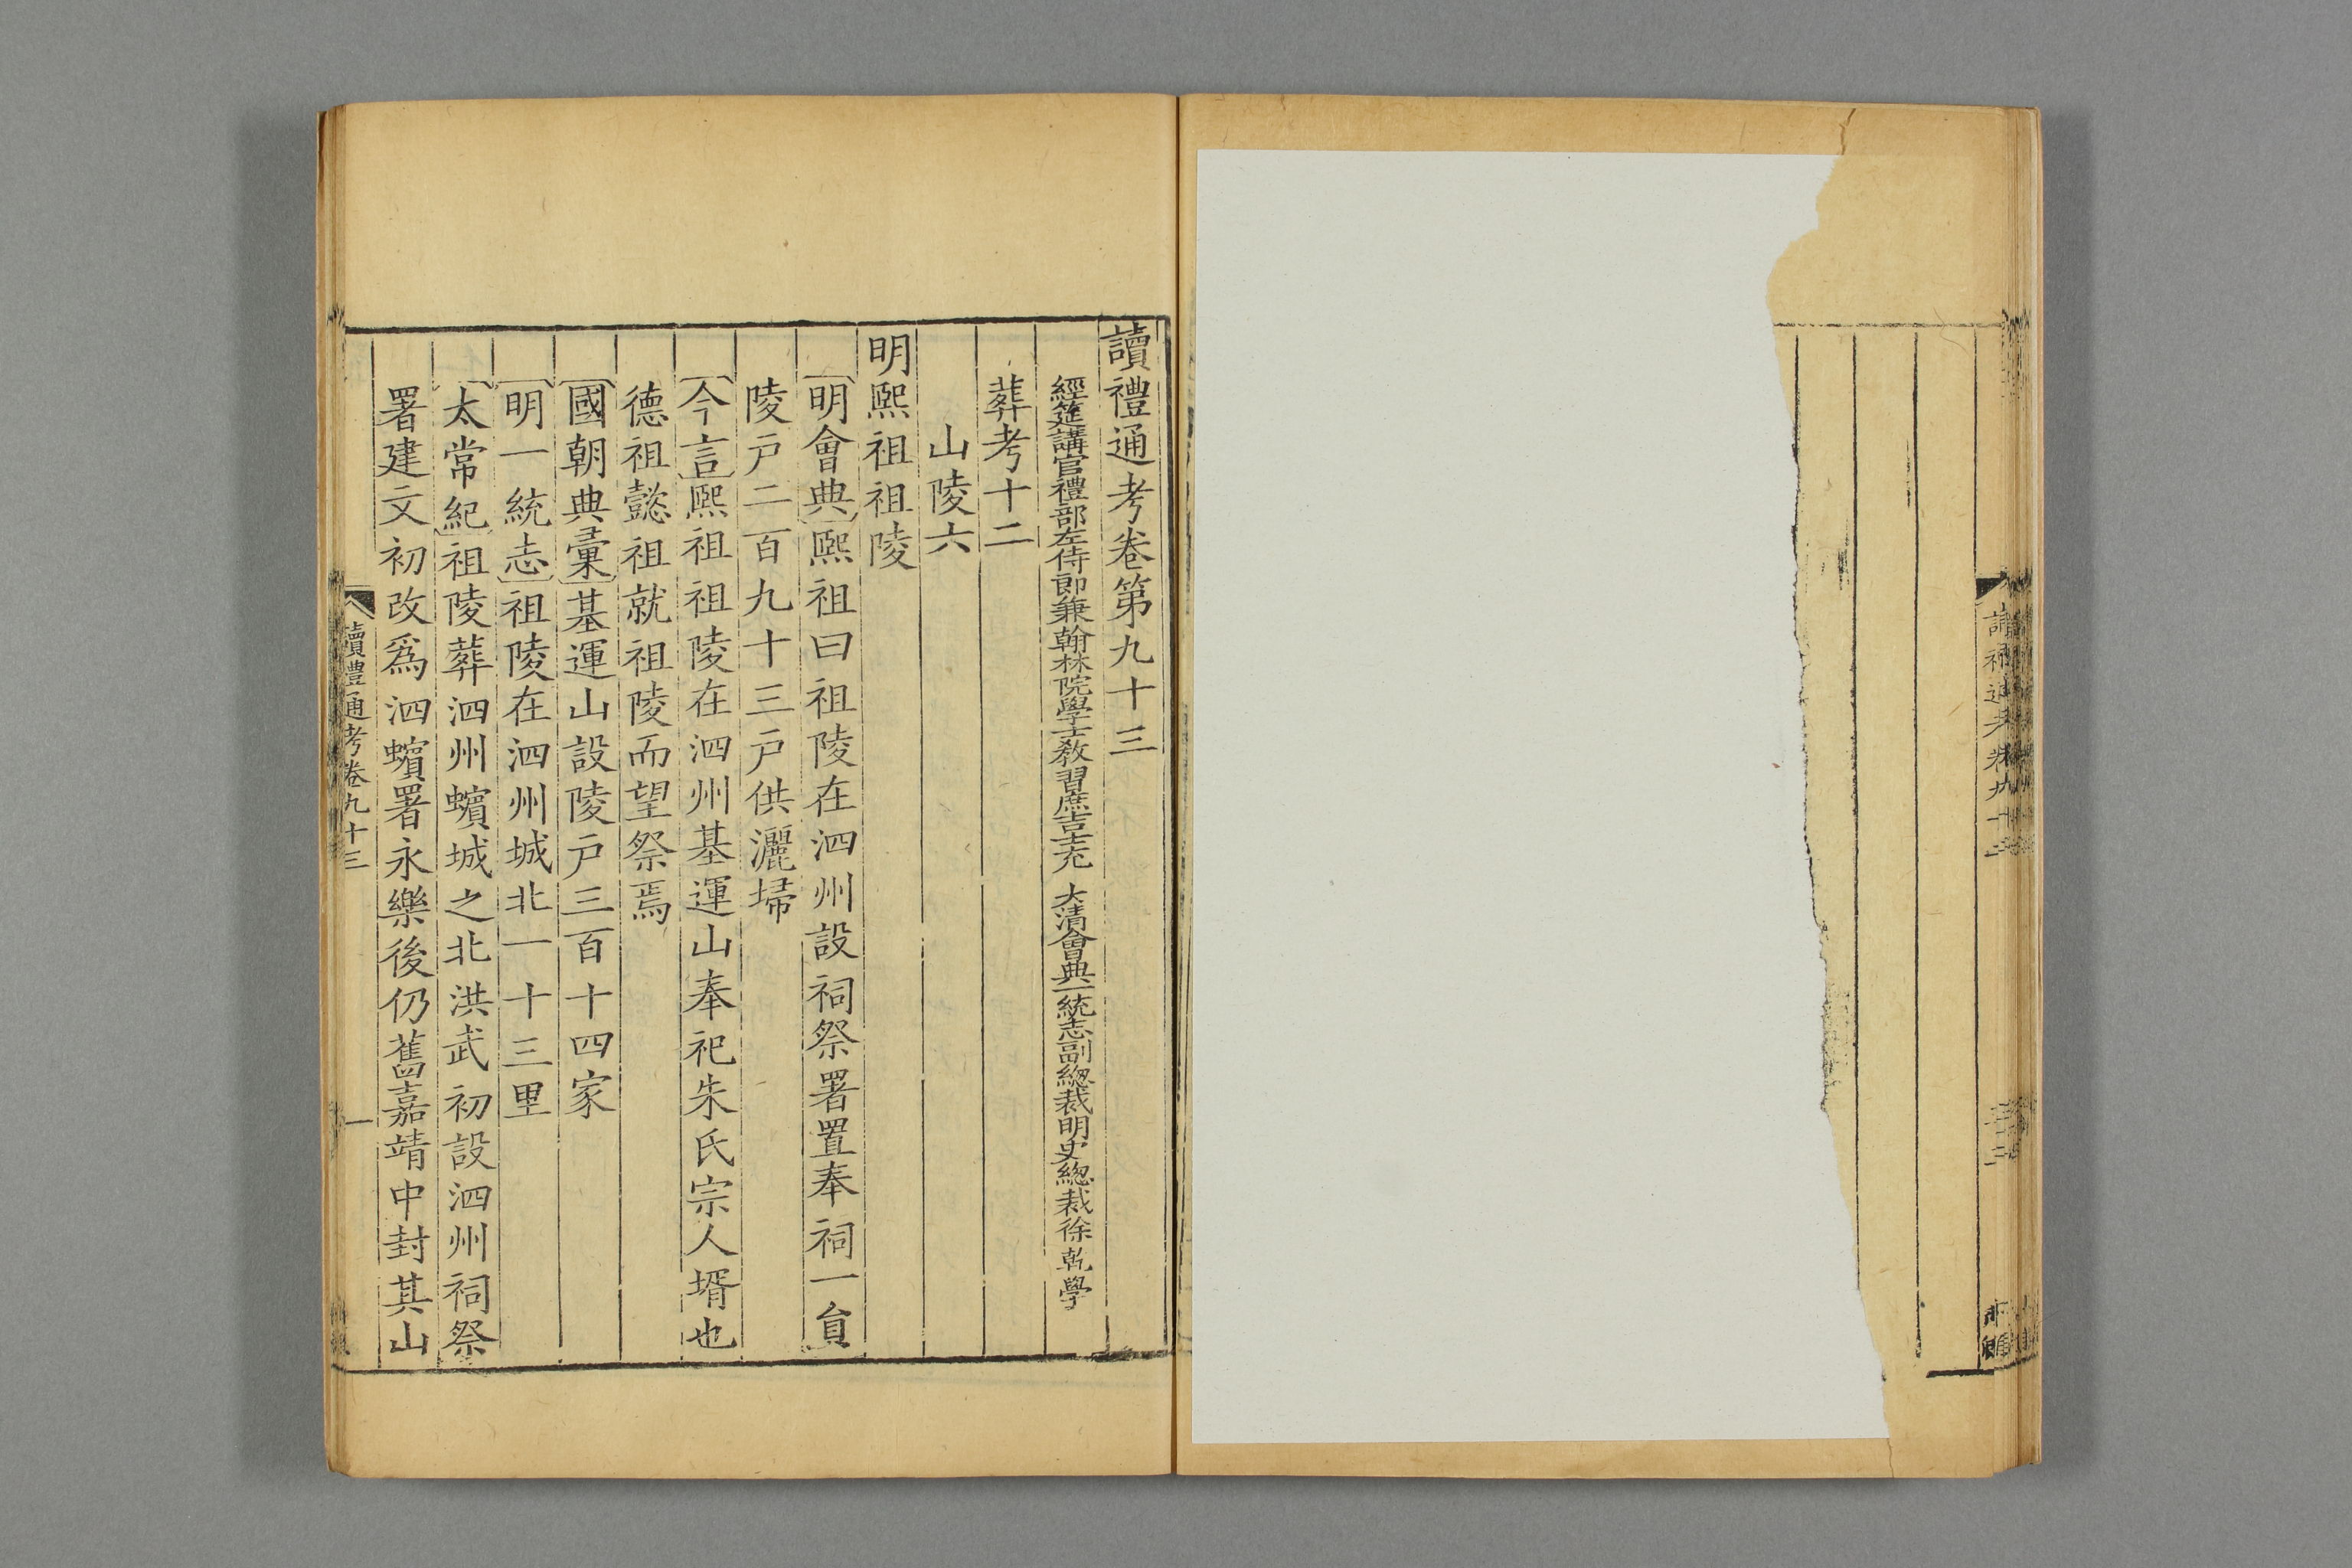 讀禮通考卷第九十三
經筵講官禮部左侍郎兼翰林院學士敎習庶吉士充 大清會典一統志副總裁明史總裁徐乾學
葬考十二
山陵六
明熙祖祖陵
明會典熙祖曰祖陵在泗州設祠祭署置奉祠一員
陵戶二百九十三戶供灑埽
今言熙祖祖陵在泗州基運山奉祀朱氏宗人壻也
德祖懿祖就祖陵而望祭焉
國朝典彙基運山設陵戶三百十四家
明一統志祖陵在泗州城北一十三里
太常紀祖陵葬泗州蠙城之北洪武初設泗州祠祭
署建文初改爲泗蠙署永樂後仍舊嘉靖中封其山
讀禮通考卷九十三
一